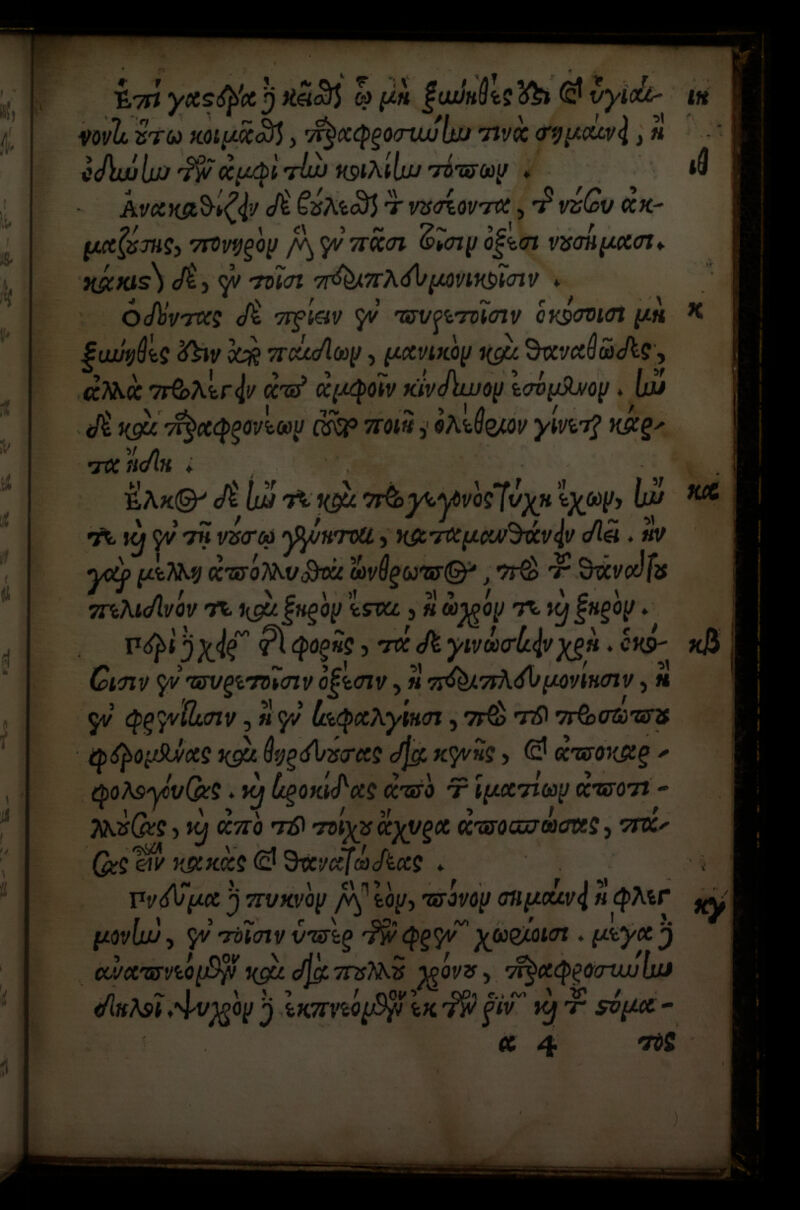 Ἐπὶ γαστέρα δὲ κεῖσθαι ᾧ μὴ ξύνηθές ἐστι καὶ ὑγιαί- ιη
νοντι οὕτω κοιμᾶσθαι, παραφροσύνην τινὰ σημαίνει, ἢ
ὀδύνην τῶν ἀμφὶ τὴν κοιλίην τόπων. ιθ
Ἀνακαθίζειν δὲ βούλεσθαι τὸν νοσέοντα, τῆς νούσου ἀκ-
μαζούσης, πονηρὸν μὲν ἐν πᾶσι τοῖσιν ὀξέσι νουσήμασι.
κάκιστον δὲ, ἐν τοῖσι περιπλευμονικοῖσιν.
Ὀδόντας δὲ πρίειν ἐν πυρετοῖσιν ὁκόσοισι μὴ κ
ξύνηθές ἐστιν ἀπὸ παιδίων, μανικὸν καὶ θανατῶδες,
ἀλλὰ προλέγειν ἀπ' ἀμφοῖν κίνδυνον ἐσόμενον. ἢν
δὲ καὶ παραφρονέων τοῦτο ποιῇ, ὀλέθριον γίνεται κάρ-
τα ἤδη.
Ἕλκος δὲ ἤν τε καὶ προγεγονὸς τύχῃ ἔχων, ἤν κα
τε καὶ ἐν τῇ νούσῳ γένηται, καταμανθάνειν δεῖ. ἢν
γὰρ μέλλῃ ἀπόλλυσθαι ὤνθρωπος, πρὸ τοῦ θανάτου
πελιδνόν τε καὶ ξηρὸν ἔσται, ἢ ὠχρόν τε καὶ ξηρόν.
Περὶ δὲ χειρῶν φορῆς, τάδε γινώσκειν χρή. ὁκό- κβ
σοισιν ἐν πυρετοῖσιν ὀξέσιν, ἢ περιπλευμονίῃσιν, ἢ
ἐν φρενίτισιν, ἢ ἐν κεφαλγίῃσι, πρὸ τοῦ προσώπου
φερομένας καὶ θηρευούσας διὰ κενῆς, καὶ ἀποκαρ-
φολογεύσας. καὶ κροκίδας ἀπὸ τῶν ἱματίων ἀποτι-
λλούσας, καὶ ἀπὸ τοῦ τοίχου ἄχυρα ἀποσπώσας, πά-
σας εἶναι κακὰς καὶ θανατώδεας.
Πνεῦμα δὲ πυκνὸν μὲν ἐὸν, πόνον σημαίνει ἢ φλεγ κγ
μονὴν, ἐν τοῖσιν ὑπὲρ τῶν φρενῶν χωρίοισι. μέγα δὲ
ἀναπνεόμενον καὶ διὰ πολλοῦ χρόνου, παραφροσύνην
δηλοῖ. ψυχρὸν δὲ ἐκπνεόμενον ἐκ τῶν ῥινῶν καὶ τοῦ στόμα-
α 4 τος